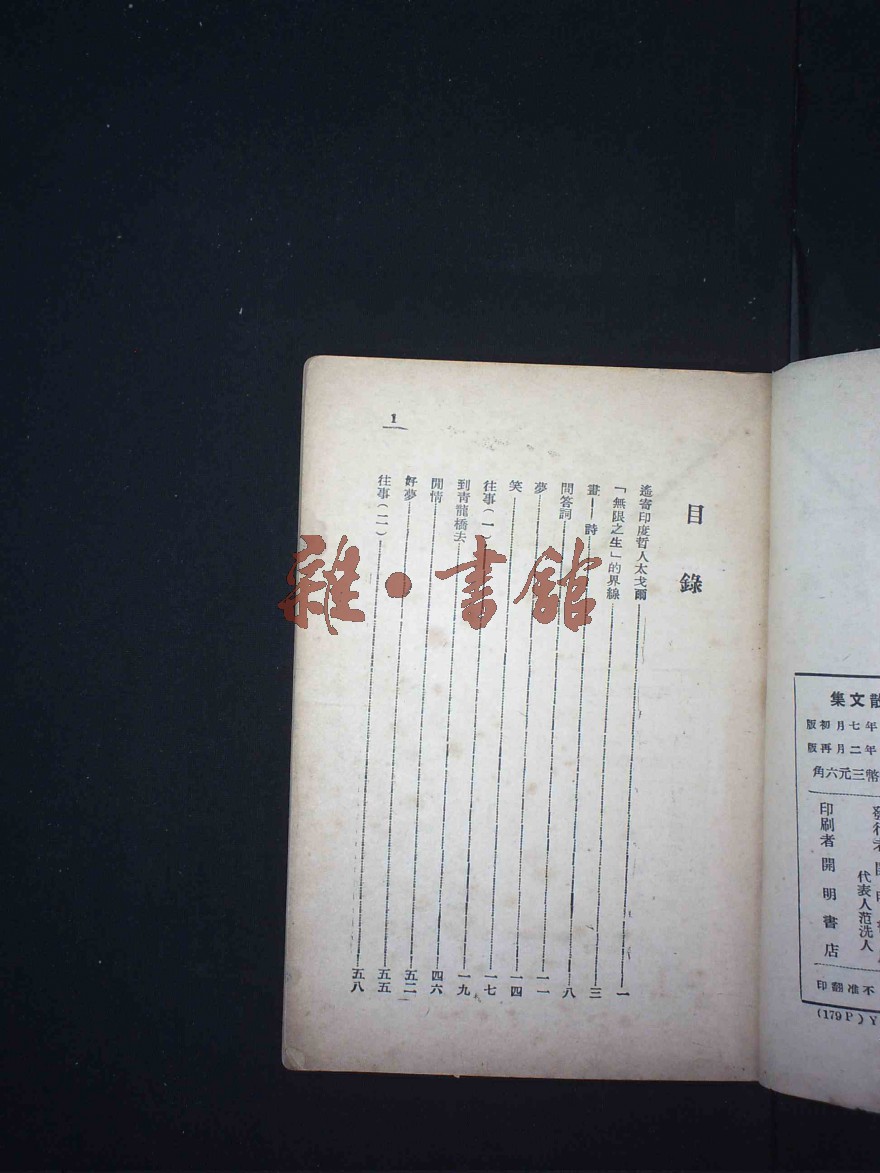 散文集
年七月初版
年二月再版
幣三元六角
代表人范洗人
印刷者 開明書店
不准翻印
(179P) Y
目錄
遙寄印度哲人太戈爾 一
「無限之生」的界線 三
畫——詩 八
問答詞 一一
夢 一四
笑 一七
往事(一) 一九
到青龍橋去 四六
閒情 五二
好夢 五五
往事(二) 五八
1
雜·書館